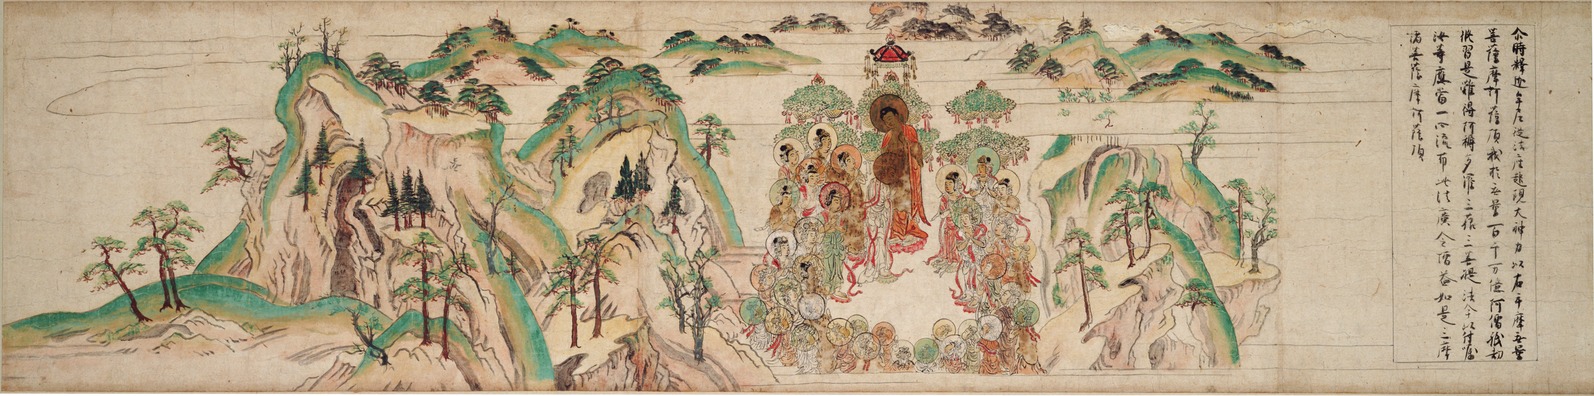 尒時釋迦牟尼從法座起現大神力以右手摩无量
菩薩摩訶薩頂我於无量百千万億阿僧祇劫
修習是難得阿耨多羅三藐三菩提法今以付囑
汝等應當一心流布此法廣令增益如是三摩
諸菩薩摩訶薩頂